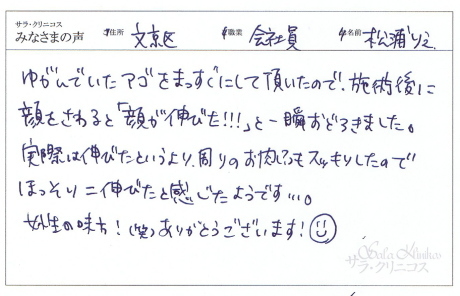 サラ・クリニコス
みなさまの声 ご住所 文京区 ご職業 会社員 お名前 松浦りえ
ゆがんでいたアゴをまっすぐにして頂いたので、施術後に
顔をさわると「顔が伸びた!!!」と一瞬おどろきました。
実際は伸びたというより、周りのお肉もスッキリしたので
ほっそり=伸びたと感じたようです…。
女性の味方!(笑)ありがとうございます!
サラ・クリニコス